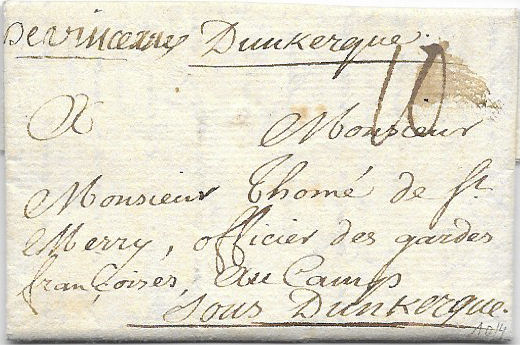 De vincennes Dunkerque.
10
A Monsieur
Monsieur Thomé de St
Merry, officier des gardes
françoises, au Camp
sous Dunkerque.